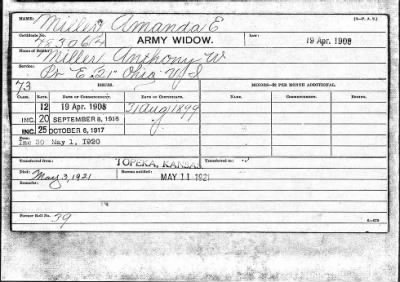 NAME: Miller Amanda E (3—P. A. V.)
Certificate No. Law:
ARMY WIDOW. 19 Apr. 1908
Name of Soldier: Miller Anthony W
Service: Pv E 21" Ohio V I
73 ISSUES. MINORS—$2 PER MONTH ADDITIONAL.
CLASS. RATE. DATE OF COMMENCEMENT. DATE OF CERTIFICATE. NAME. COMMENCEMENT. ENDING.
12 19 Apr. 1908 31 Aug 1899
INC. 20 SEPTEMBER 8, 1916
INC. 25 OCTOBER 6, 1917
Inc 30 May 1, 1920
Transferred from: TOPEKA, KANSAS Transferred to:
Died: May 3, 1921 Bureau notified: MAY 11 1921
Remarks:
Former Roll No. 39